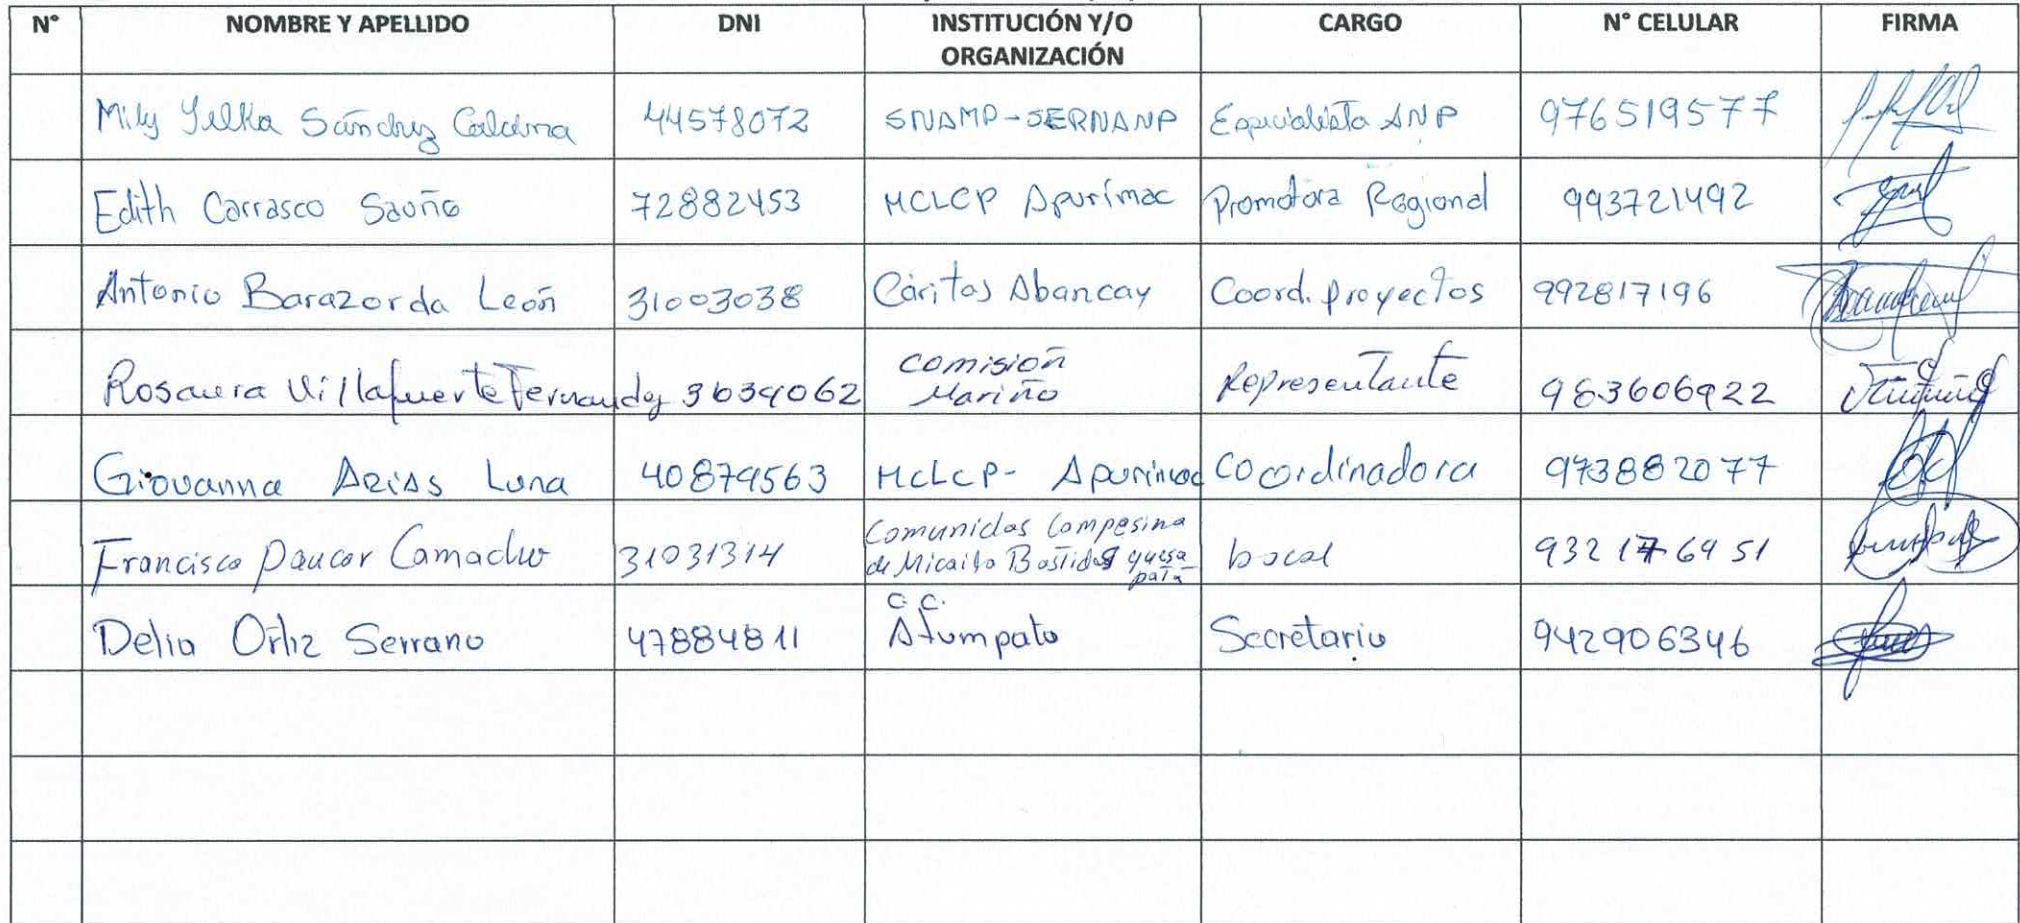 N° NOMBRE Y APELLIDO DNI INSTITUCIÓN Y/O ORGANIZACIÓN CARGO N° CELULAR FIRMA
Mily Yelka Sánchez 44578072 SNAMP-SERNANP Especialista ANP 976519577
Edith Carrasco Saoño 72882453 MCLCP Apurímac Promotora Regional 993721492
Antonio Barazorda León 31003038 Cáritas Abancay Coord. proyectos 992817196
Rosaura Villafuerte Fernandez 3634062 Comisión Mariño Representante 983606922
Giovanna Arias Luna 40879563 MCLCP- Apurimac Cocordinadora 973882077
Francisco Paucar Camacho 31031314 Comunidas Campesina de Micaila Bastidas bocal 932176951
Delia Ortiz Serrano 47884811 C.C. Atumpata Secretario 942906346